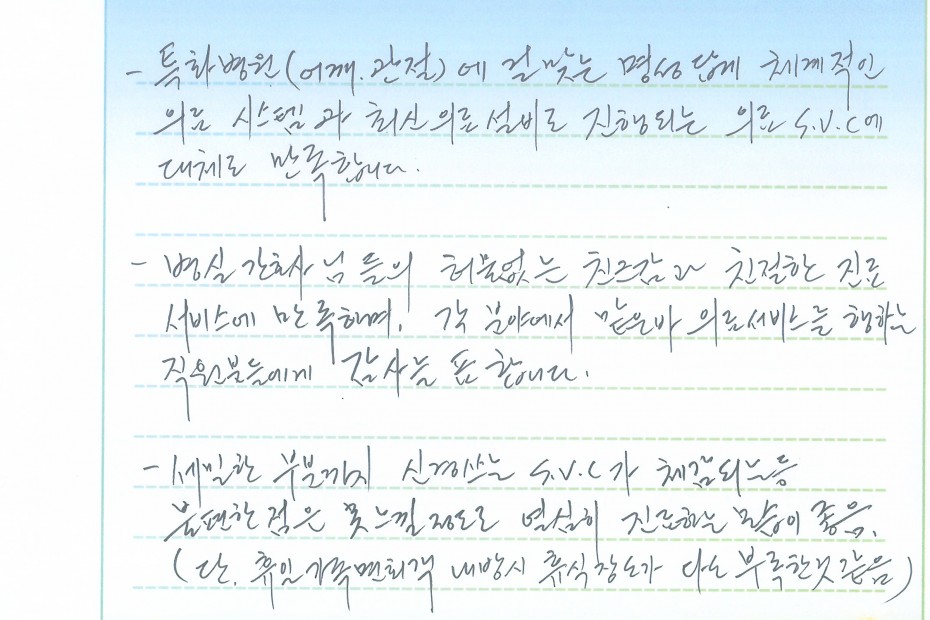 - 특화병원(어깨.관절)에 걸맞는 명성답게 체계적인
의료 시스템과 최신의료설비로 진행되는 의료 S.V.C에
대체로 만족합니다.
- 병실 간호사님들의 허물없는 친근감과 친절한 진료
서비스에 만족하며, 각 분야에서 맡은바 의료서비스를 행하는
직원분들에게 감사를 표합니다.
- 세밀한 부분까지 신경쓰는 S.V.C가 체감되는등
불편한 점은 못느낄 정도로 열심히 진료하는 모습이 좋음.
(단, 휴일 가족면회객 내방시 휴식장소가 다소 부족한것 같음)